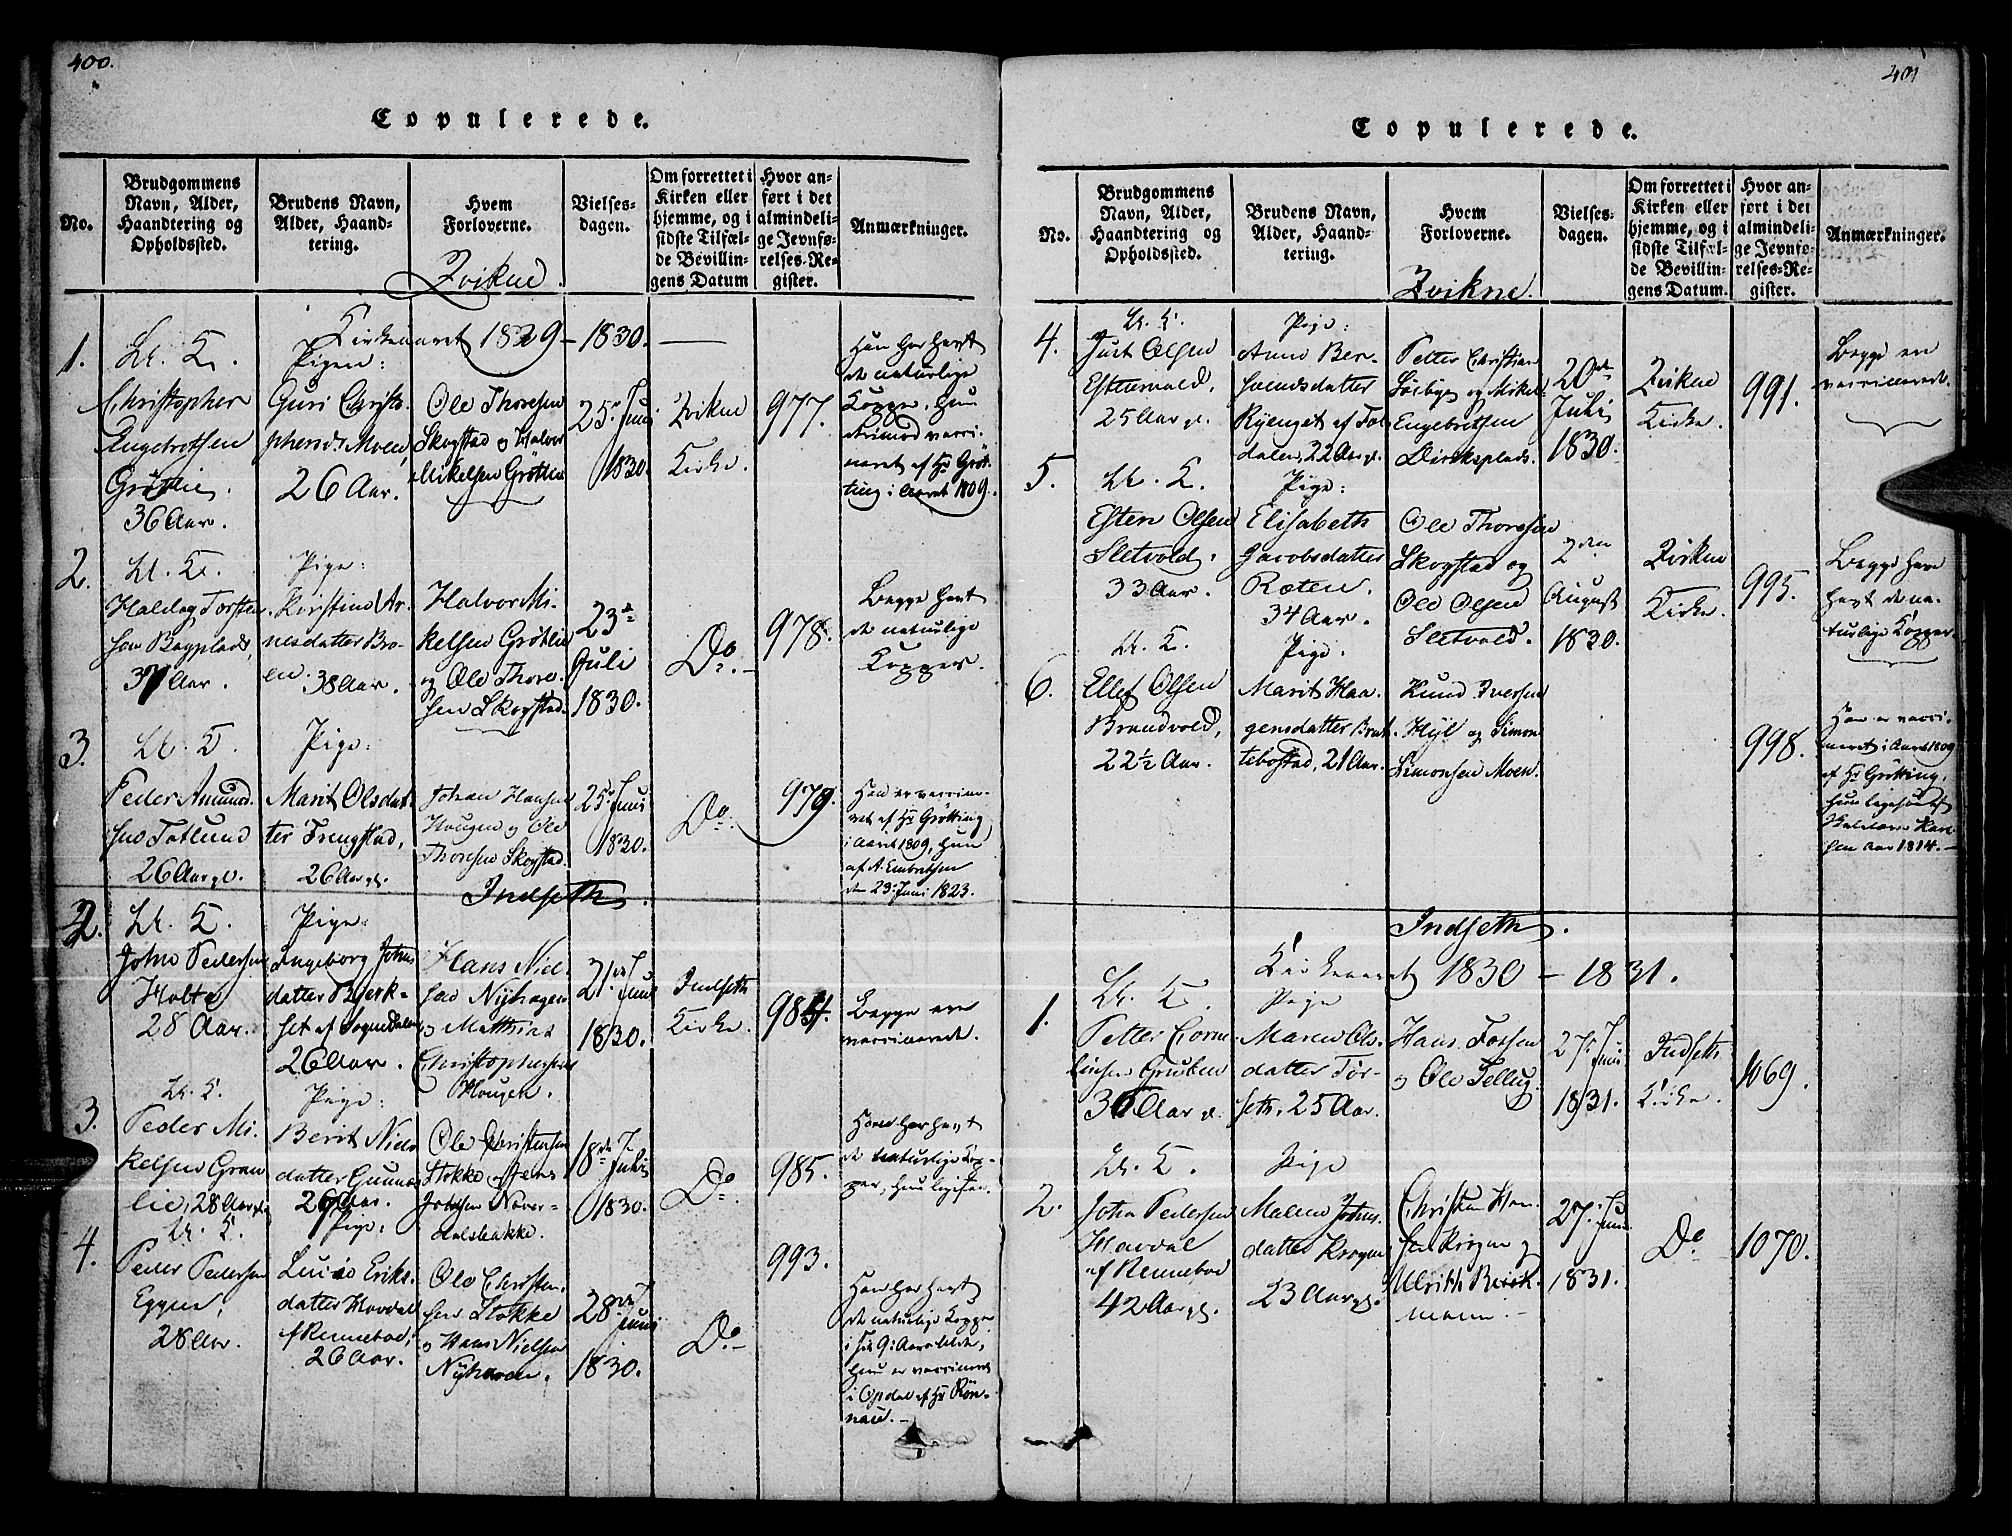 400.
Copulerede.
No.
Brudgommens
Navn, Alder,
Haandtering og
Opholdssted.
Brudens Navn,
Alder, Haand-
tering.
Hvem
Forloverne.
Vielses-
dagen.
Om forrettet i
Kirken eller
hjemme, og i
sidste Tilfæl-
de Bevillin-
gens Datum
Hvor an-
ført i det
almindeli-
ge Jevnfø-
relses-Re-
gister.
Anmærkninger.
Qvikne.
Kirkeaaret 1829 – 1830.
1.
U. K.
Christopher
Engebretsen
Grøtlie.
36 Aar.
Pigen:
Guri Christo-
phersd. Moen,
26 Aar.
Ole Thoresen
Skogstad og Halvor
Mikelsen Grøtlie
25. Juni
1830.
Qvikne
Kirke.
977.
Han har havt
de naturlige
Kopper, hun
derimod vacci-
neret af Hr Grøt-
ting i Aaret 1809.
2.
U. K.
Haldog Torsten-
sen Bagplads,
37 Aar.
Pige:
Kirstine Ar-
nesdatter Bro-
en. 38 Aar.
Halvor Mi-
kelsen Grøtlie
og Ole Thore-
sen Skogstad.
23de
Juli
1830.
Do.
978.
Begge havt
de naturlige
Kopper.
3.
U. K.
Peder Amund-
sen Toslund
26 Aar gl.
Pige:
Marit Olsdat-
ter Frengstad,
26 Aar gl.
Johan Hansen
Haugen og Ole
Thoresen Skogstad.
25. Juni
1830.
Do.
979.
Han er vacci-
neret af Hr Grøtting
i Aaret 1809, hun
af A. Embretsen
den 23. Juni 1823.
Indseth.
2.
U. K.
John Pedersen
Holte
28 Aar.
Pige:
Ingeborg Johns-
datter Bjerk-
set af Sognedalen
26 Aar.
Hans Niel-
sen Nyhagen
og Matthias
Christophersen
Hougen.
21de Juni
1830.
Indseth
Kirke.
984.
Begge ere
vaccineret.
3.
U. K.
Peder Mi-
kelsen Gran-
lie, 28 Aar gl.
Pige:
Berit Niels-
datter Gunnæs
26 Aar.
Ole Christensen
Stokke og Jens
Jobsen Naver-
dalsbakke.
18de Juli
1830.
Do.
985.
Han har havt
de naturlige Kop-
per, hun ligesaa.
4.
U. K.
Peder Pedersen
Eggen,
28 Aar.
Pige:
Lucie Eriks-
datter Havdal
af Renneboe,
26 Aar.
Ole Christen-
sen Stokke
og Hans Nielsen
Nyhagen.
28de Juni
1830.
Do.
993.
Han har havt
de naturlige Kopper
i sit 9. Aars Alder,
hun er vaccineret
i Opdal af Hr Røn-
nau.
401
Copulerede.
No.
Brudgommens
Navn, Alder,
Haandtering og
Opholdssted.
Brudens Navn,
Alder, Haand-
tering.
Hvem
Forloverne.
Vielses-
dagen.
Om forrettet i
Kirken eller
hjemme, og i
sidste Tilfæl-
de Bevillin-
gens Datum.
Hvor an-
ført i det
almindeli-
ge Jevnfø-
relses-Re-
gister.
Anmærkninger.
Qvikne.
4.
U. K.
Just Olsen
Estenvald,
25 Aar gl.
Pige:
Anne Ber-
sdatter
Ryenget af Tol-
dalen, 22 Aar gl.
Petter Christian
Sæsbye og Mikel
Engebretsen
Dirksplads.
20de
Juli
1830.
Qvikne
Kirke.
991.
Begge ere
vaccineret.
5.
U. K.
Esten Olsen
Sletvold,
33 Aar.
Pige:
Elisabeth
Jacobsdatter
Røten.
34 Aar.
Ole Thoresen
Skogstad og
Ole Olsen
Sletvold.
2den
August
1830.
Qvikne
Kirke.
995.
Begge have
havt de na-
turlige Kopper
6.
U. K.
Ellef Olsen
Brandvold,
22½ Aar.
Pige:
Marit Haa-
gensdatter Brat-
tebostad, 21 Aar.
Knud Iversen
Hyl og Simon
Simonsen Moen.
998.
Han er vacci-
neret i Aaret 1809
af Hr Grøtting,
hun ligesaa af
Han-
sen Aar 1814.
Indseth.
Kirkeaaret 1830 – 1831.
1.
U. K.
Petter Corne-
liusen Gruben
30 Aar gl.
Pige
Maren Ols-
datter Tør-
seth, 25 Aar.
Hans Fossen
og Ole Tellug.
27. Juni
1831.
Indseth
Kirke.
1069.
2.
U. K.
John Pedersen
Havdal
af Renneboe
42 Aar gl.
Pige
Malene Johns-
datter Krogen
23 Aar gl.
Christen Han-
sen Krogen og
Ulrikh Beick-
mann.
27. Juni
1831.
Do
1070.